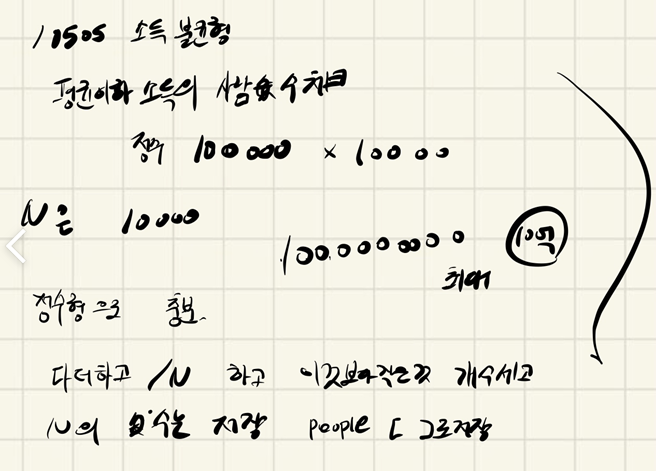 10505 소득 불균형
평균이하 소득의 사람 수 차이
정수 100000 × 10000
N은 10000
1000000000 10억
최대
정수형으로 충분
다더하고 /N 하고 이것보다작은것 개수세고
N의 수는 저장 people [ 그로저장